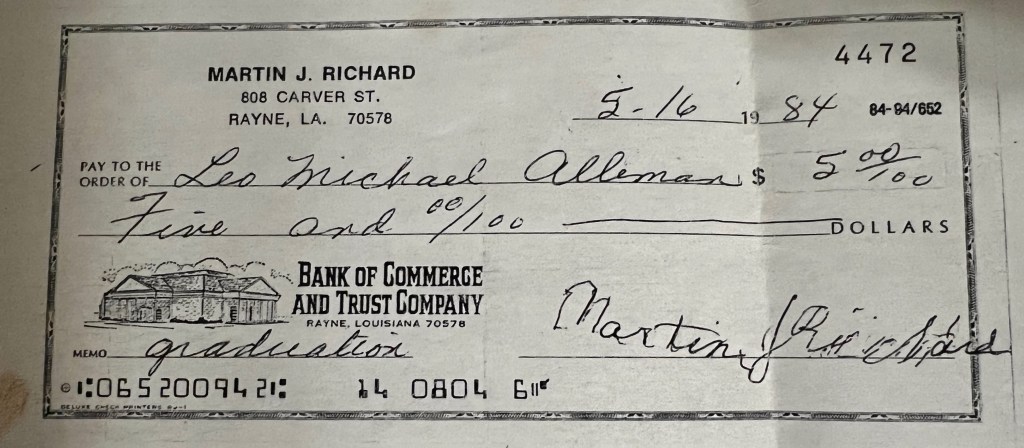 4472
MARTIN J. RICHARD
808 CARVER ST.
RAYNE, LA. 70578
5-16 19 84 84-94/652
PAY TO THE ORDER OF Leo Michael Alleman $ 5 00/100
Five and 00/100 DOLLARS
BANK OF COMMERCE
AND TRUST COMPANY
RAYNE, LOUISIANA 70578
Martin J Richard
MEMO graduation
⑆065200942⑆ 14 0804 6⑈
DELUXE CHECK PRINTERS